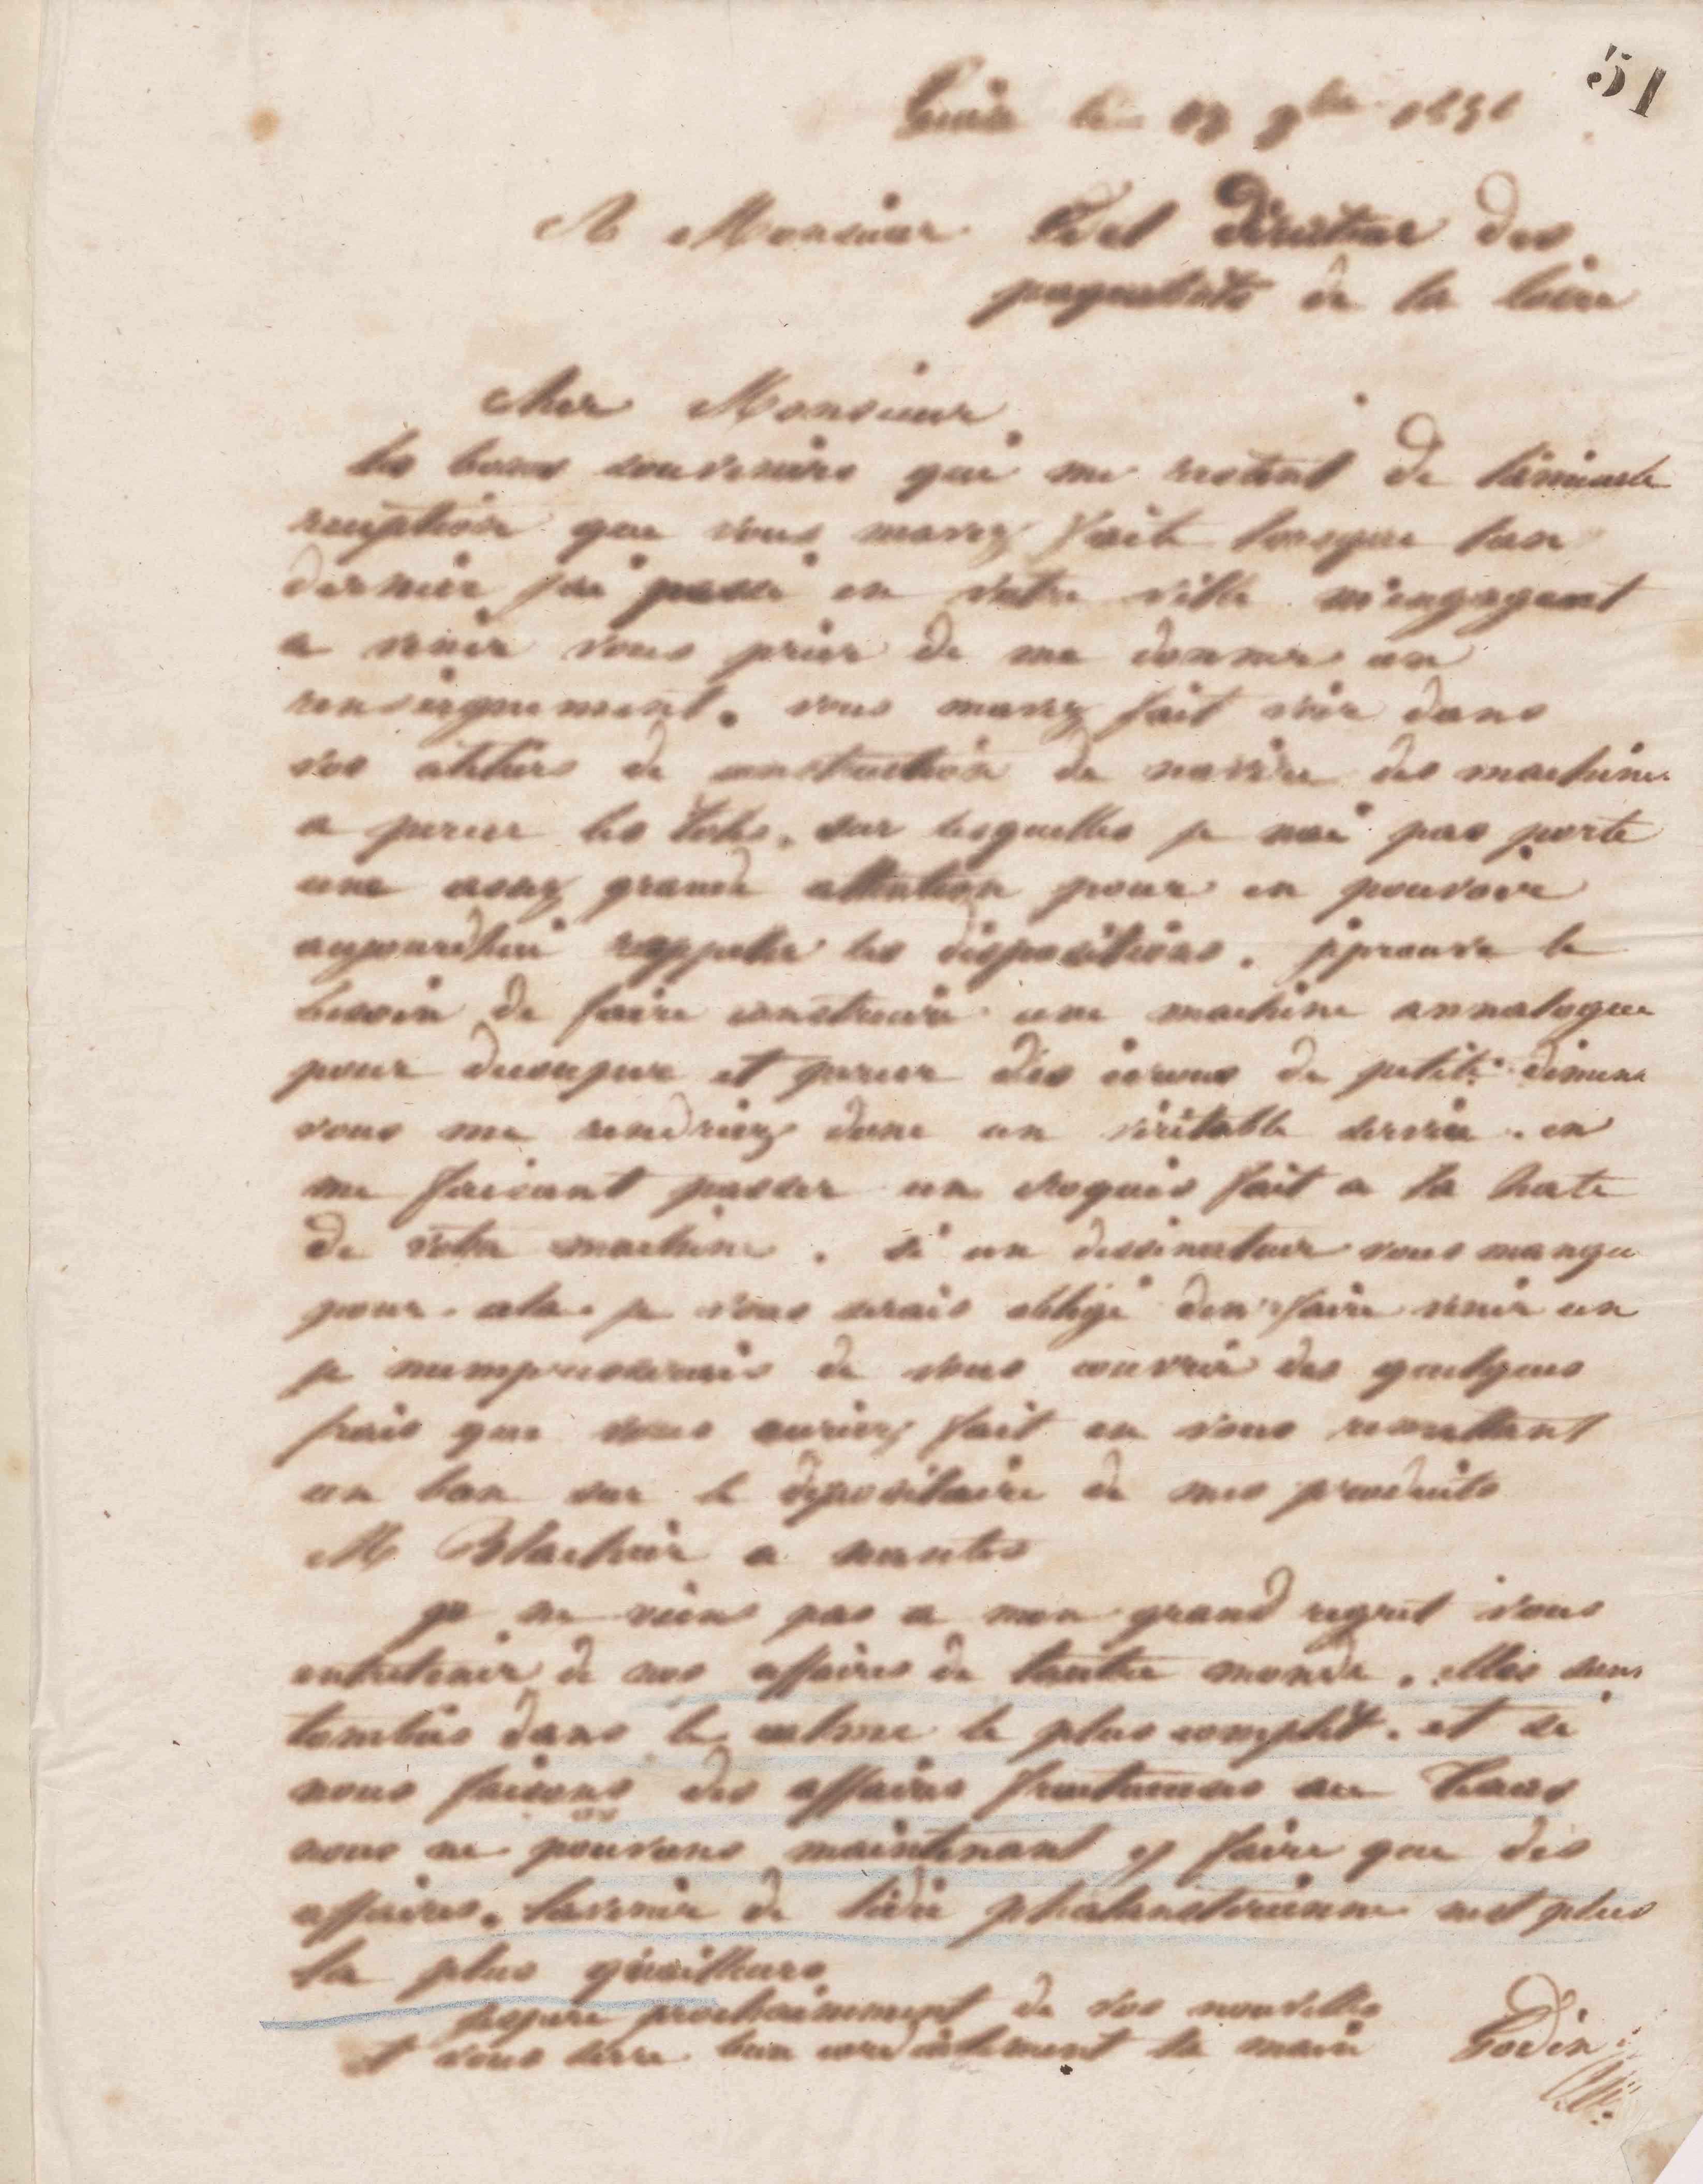 51
Guise le 9bre
A Monsieur Edel directeur des
paquebots de la loire
cher Monsieur
les bons souvenirs qui me restent de lamicale
reception que vous mavez faite lorsque lan
dernier jai passé en votre ville m'engagent
a venir vous prier de me donner un
renseignement. vous mavez fait voir dans
vos ateliers de construction de navire des machines
a percer les toles, sur lesquelles je nai pas porté
une assez grande attention pour en pouvoir
aujourdhui rappeller les dispositions. jéprouve le
besoin de faire construire une machine annalogue
pour decouper et percer des
vous me rendriez donc un véritable service. en
me faisant passer un croquis fait a la hate
de votre machine. si un dessinateur vous manque
pour cela. je vous serais obligé den faire venir un
je mempresserais de vous couvrir des quelques
frais que vous auriez fait en vous remettant
un bon sur le dépositaire de mes produits
M a nantes
je ne viens pas a mon grand regret vous
entretenir de nos affaires de lautre monde. elles sont
tombées dans le calme le plus complèt. et si
nous faisons des affaires au texas
nous ne pouvons maintenant y faire que des
affaires. lavenir de lidée phalanstérienne nest plus
la plus qu'ailleurs
jespère prochainement de vos nouvelles
et vous serre bien cordialement la main Godin